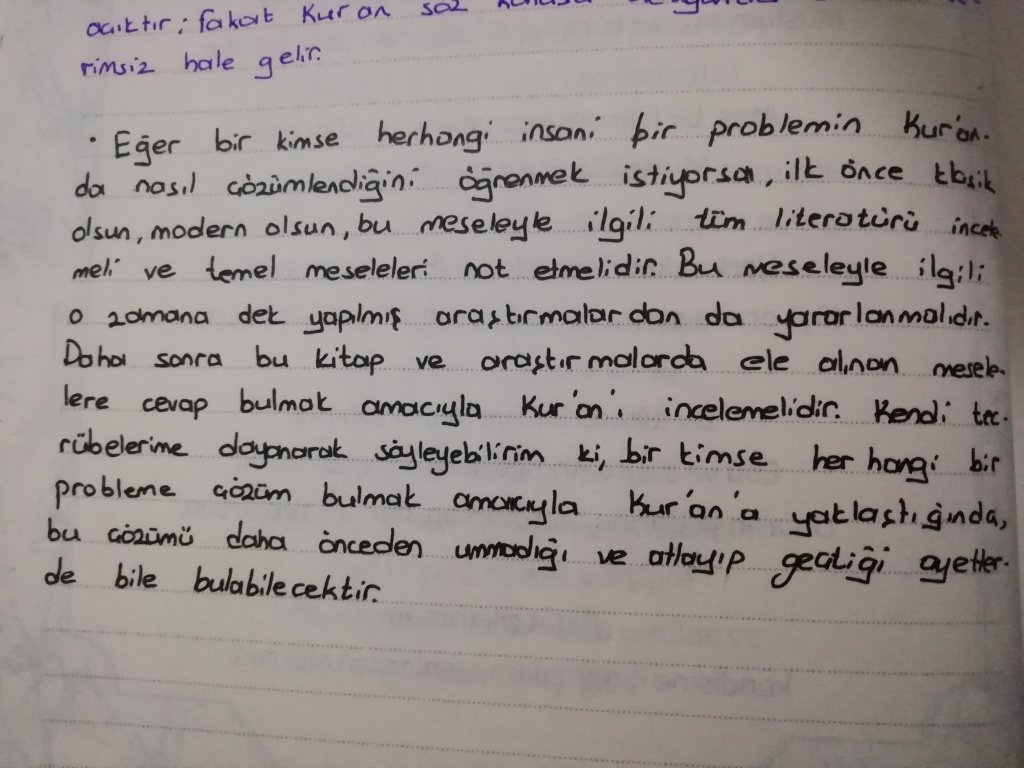 açıktır; fakat Kur'an söz
rimsiz hale gelir.
• Eğer bir kimse herhangi insani bir problemin Kur'ân-
da nasıl çözümlendiğini öğrenmek istiyorsa, ilk önce klasik
olsun, modern olsun, bu meseleyle ilgili tüm literatürü incele-
meli ve temel meseleleri not etmelidir. Bu meseleyle ilgili
o zamana dek yapılmış araştırmalardan da yararlanmalıdır.
Daha sonra bu kitap ve araştırmalarda ele alınan mesele-
lere cevap bulmak amacıyla Kur'ân'ı incelemelidir. Kendi tec-
rübelerime dayanarak söyleyebilirim ki, bir kimse her hangi bir
probleme çözüm bulmak amacıyla Kur'ân'a yaklaştığında,
bu çözümü daha önceden ummadığı ve atlayıp geçtiği ayetler-
de bile bulabilecektir.